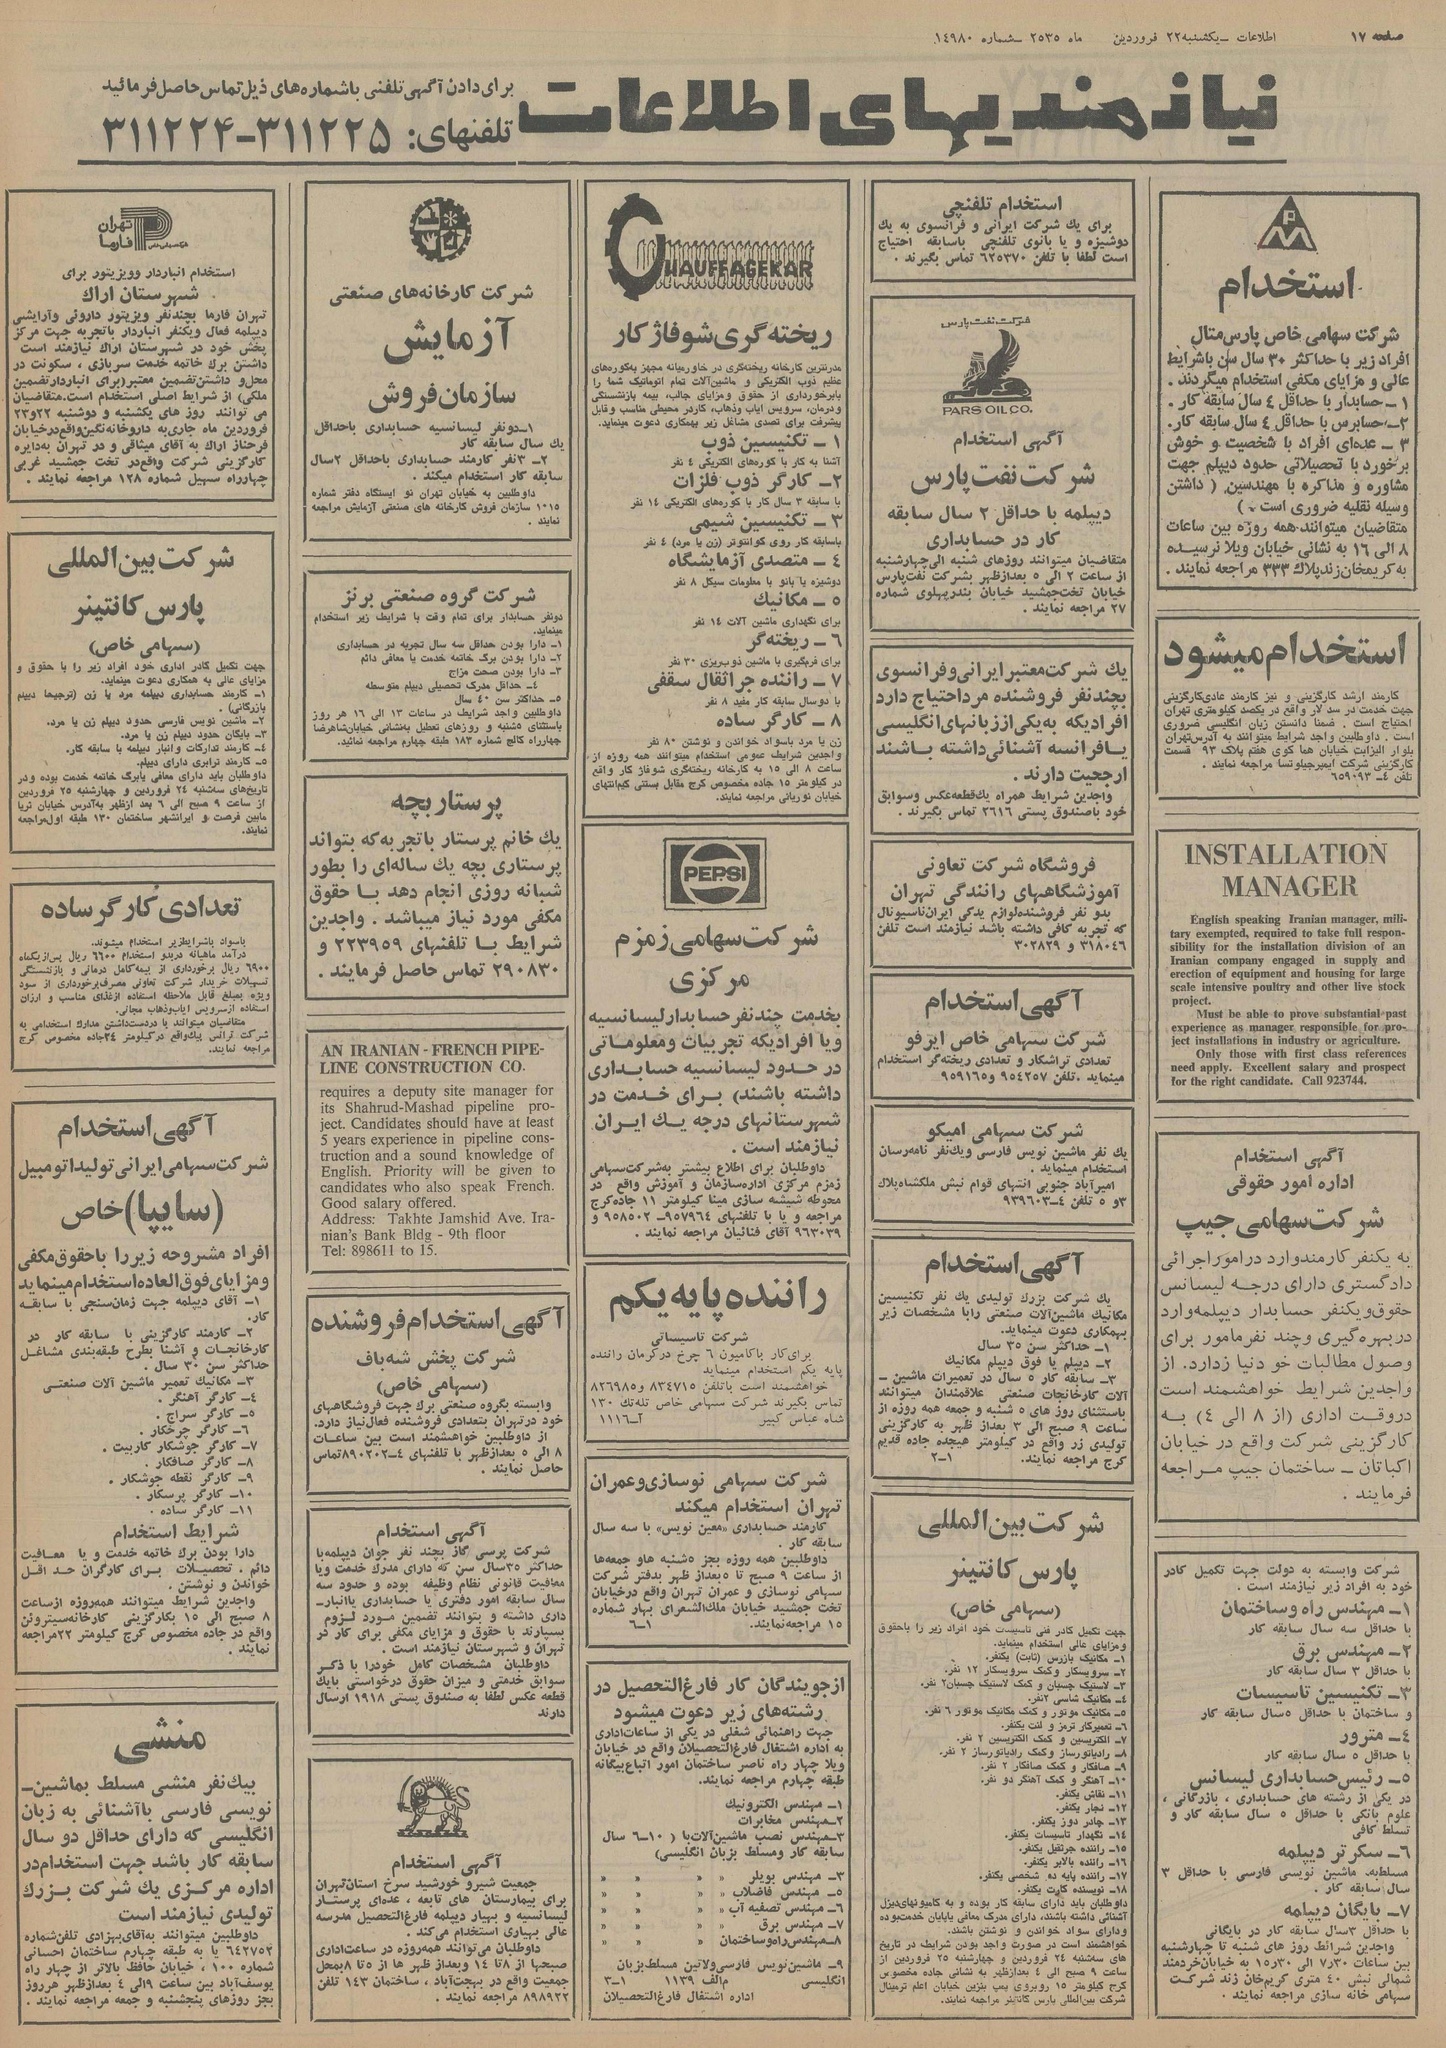 صفحه ۱۷
اطلاعات ـ یکشنبه ۲۲ فروردین ماه ۲۵۳۵ ـ شماره ۱۴۹۸۰
نیازمندیهای اطلاعات
برای دادن آگهی تلفنی باشماره‌های ذیل تماس حاصل فرمائید
تلفنهای: ۳۱۱۲۲۵-۳۱۱۲۲۴
استخدام
شرکت سهامی خاص پارس متال
افراد زیر با حداکثر ۳۰ سال سن باشرایط
عالی و مزایای مکفی استخدام میگردند .
۱ ـ حسابدار با حداقل ٤ سال سابقه کار .
۲ـ حسابرس با حداقل ٤ سال سابقه کار.
۳ ـ عده‌ای افراد با شخصیت و خوش
برخورد با تحصیلاتی حدود دیپلم جهت
مشاوره و مذاکره با مهندسین ( داشتن
وسیله نقلیه ضروری است . )
متقاضیان میتوانند همه روزه بین ساعات
۸ الی ۱۶ به نشانی خیابان ویلا نرسیده
به کریمخان زند پلاك ۳۳۳ مراجعه نمایند .
استخدام میشود
کارمند ارشد کارگزینی و نیز کارمند عادی کارگزینی
جهت خدمت در سد لار واقع در یکصد کیلومتری تهران
احتیاج است . ضمنا دانستن زبان انگلیسی ضروری
است . داوطلبین واجد شرایط میتوانند به آدرس تهران
بلوار الیزابت خیابان هما کوی هفتم پلاك ۹۳ قسمت
کارگزینی شرکت ایمپرجیلوتسا مراجعه نمایند .
تلفن ٤ـ ۶۵۹۰۹۳
INSTALLATION
MANAGER
English speaking Iranian manager, mili-
tary exempted, required to take full respon-
sibility for the installation division of an
Iranian company engaged in supply and
erection of equipment and housing for large
scale intensive poultry and other live stock
project.
Must be able to prove substantial past
experience as manager responsible for pro-
ject installations in industry or agriculture.
Only those with first class references
need apply. Excellent salary and prospect
for the right candidate. Call 923744.
آگهی استخدام
اداره امور حقوقی
شرکت سهامی جیپ
به یکنفر کارمندوارد درامور اجرائی
دادگستری دارای درجه لیسانس
حقوق ویکنفر حسابدار دیپلمه وارد
دربهره‌گیری وچند نفر مامور برای
وصول مطالبات خود نیاز دارد. از
واجدین شرایط خواهشمند است
دروقت اداری (از ۸ الی ٤) به
کارگزینی شرکت واقع در خیابان
اکباتان ـ ساختمان جیپ مراجعه
فرمایند .
شرکت وابسته به دولت جهت تکمیل کادر
خود به افراد زیر نیازمند است .
۱ـ مهندس راه وساختمان
با حداقل سه سال سابقه کار
۲ـ مهندس برق
با حداقل ۳ سال سابقه کار
۳ـ تکنیسین تاسیسات
و ساختمان با حداقل ۵سال سابقه کار
٤ـ مترور
با حداقل ۵ سال سابقه کار
۵ـ رئیس حسابداری لیسانس
در یکی از رشته های حسابداری ، بازرگانی ،
علوم بانکی با حداقل ۵ سال سابقه کار و
تسلط کافی
۶ـ سکرتر دیپلمه
مسلط به ماشین نویسی فارسی با حداقل ۳
سال سابقه کار .
۷ـ بایگان دیپلمه
با حداقل ۳سال سابقه کار در بایگانی
واجدین شرائط روز های شنبه تا چهارشنبه
بین ساعات ۷٫۳۰ الی ۱۵٫۳۰ به خیابان خردمند
شمالی نبش ٤۰ متری کریم خان زند شرکت
سهامی خانه سازی مراجعه نمایند .
استخدام تلفنچی
برای یك شرکت ایرانی و فرانسوی به یك
دوشیزه و یا بانوی تلفنچی باسابقه احتیاج
است لطفا با تلفن ۶۲۵۳۷۰ تماس بگیرند .
شرکت نفت پارس
PARS OIL CO.
آگهی استخدام
شرکت نفت پارس
دیپلمه با حداقل ۲ سال سابقه
کار در حسابداری
متقاضیان میتوانند روزهای شنبه الی چهارشنبه
از ساعت ۲ الی ۵ بعدازظهر بشرکت نفت پارس
خیابان تخت جمشید خیابان بندر پهلوی شماره
۲۷ مراجعه نمایند .
یك شرکت معتبر ایرانی و فرانسوی
بچند نفر فروشنده مرد احتیاج دارد
افرادیکه به یکی از زبانهای انگلیسی
یا فرانسه آشنائی داشته باشند
ارجعیت دارند .
واجدین شرایط همراه یك قطعه عکس وسوابق
خود باصندوق پستی ۲۶۱۶ تماس بگیرند .
فروشگاه شرکت تعاونی
آموزشگاههای رانندگی تهران
بدو نفر فروشنده لوازم یدکی ایران ناسیونال
که تجربه کافی داشته باشد نیازمند است تلفن
۳۱۸۰٤۶ و ۳۰۲۸۲۹
آگهی استخدام
شرکت سهامی خاص ایرفو
تعدادی تراشکار و تعدادی ریخته‌گر استخدام
مینماید . تلفن ۹۵٤۲۵۷ و ۹۵۹۱۶۵
شرکت سهامی امیکو
یك نفر ماشین نویس فارسی ویك نفر نامه‌رسان
استخدام مینماید .
امیرآباد جنوبی انتهای قوام نبش ملکشاه پلاك
۳ و ۵ تلفن ٤ـ ۹۳۹۶۰۳
آگهی استخدام
یك شرکت بزرك تولیدی یك نفر تکنیسین
مکانیك ماشین‌آلات صنعتی رابا مشخصات زیر
بهمکاری دعوت مینماید.
۱ـ حداکثر سن ۳۵ سال
۲ـ دیپلم یا فوق دیپلم مکانیك
۳ـ سابقه کار ۵ سال در تعمیرات ماشین ـ
آلات کارخانجات صنعتی علاقمندان میتوانند
باستثنای روز های ۵ شنبه و جمعه همه روزه از
ساعت ۹ صبح الی ۳ بعداز ظهر به کارگزینی
تولیدی زر واقع در کیلومتر هیجده جاده قدیم
کرج مراجعه نمایند. ۲-۱
شرکت بین المللی
پارس کانتینر
(سهامی خاص)
جهت تکمیل کادر فنی تاسیسات خود افراد زیر را باحقوق
ومزایای عالی استخدام مینماید.
۱ـ مکانیك بازرس (ثابت) یکنفر.
۲ـ سرویسکار وکمك سرویسکار ۱۲ نفر.
۳ـ لاستیك چسبان و کمك لاستیك چسبان ۲ نفر.
٤ـ مکانیك شاسی ۲نفر.
۵ـ مکانیك موتور و کمك مکانیك موتور ۶ نفر.
۶ـ تعمیرکار ترمز و لنت یکنفر.
۷ـ الکتریسین و کمك الکتریسین ۲ نفر.
۸ـ رادیاتورساز وکمك رادیاتورساز ۲ نفر.
۹ـ صافکار و کمك صافکار ۲ نفر.
۱۰ـ آهنگر و کمك آهنگر دو نفر.
۱۱ـ نقاش یکنفر.
۱۲ـ نجار یکنفر.
۱۳ـ چادر دوز یکنفر.
۱٤ـ نگهدار تاسیسات یکنفر.
۱۵ـ راننده جرثقیل یکنفر.
۱۶ـ راننده بالابر یکنفر.
۱۷ـ راننده پایه ده شخصی یکنفر.
۱۸ـ نویسنده کارت یکنفر.
داوطلبان باید دارای سابقه کار بوده و به کامیونهای دیزل
آشنائی داشته باشند، دارای مدرك معافی یاپایان خدمت بوده
ودارای سواد خواندن و نوشتن باشند.
خواهشمند است در صورت واجد بودن شرایط، در تاریخ
های سه‌شنبه ۲٤ فروردین و چهارشنبه ۲۵ فروردین از
ساعت ۹ صبح الی ٤ بعدازظهر به نشانی جاده مخصوص
کرج کیلومتر ۱۵ روبروی پمپ بنزین خیابان اعلم ترمینال
شرکت بین‌المللی پارس کانتینر مراجعه نمایند.
CHAUFFAGEKAR
ریخته گری شوفاژ کار
مدرنترین کارخانه ریخته‌گری در خاورمیانه مجهز به کوره‌های
عظیم ذوب الکتریکی و ماشین‌آلات تمام اتوماتیك شما را
بابرخورداری از حقوق و مزایای جالب، بیمه بازنشستگی
ودرمان، سرویس ایاب وذهاب، کادر محیطی مناسب وقابل
پیشرفت برای تصدی مشاغل زیر بهمکاری دعوت مینماید.
۱ ـ تکنیسین ذوب
آشنا به کار با کوره‌های الکتریکی ٤ نفر
۲ـ کارگر ذوب فلزات
با سابقه ۳ سال کار با کوره‌های الکتریکی ۱٤ نفر
۳ ـ تکنیسین شیمی
باسابقه کار روی کوانتومتر (زن یا مرد) ٤ نفر
٤ ـ متصدی آزمایشگاه
دوشیزه یا بانو با معلومات سیکل ۸ نفر
۵ ـ مکانیك
برای نگهداری ماشین آلات ۱٤ نفر
۶ ـ ریخته‌گر
برای فرمگیری با ماشین ذوب ریزی ۳۰ نفر
۷ ـ راننده جراثقال سقفی
با دوسال سابقه کار مفید ۸ نفر
۸ ـ کارگر ساده
زن یا مرد باسواد خواندن و نوشتن ۸۰ نفر
واجدین شرایط عمومی استخدام میتوانند همه روزه از
ساعت ۸ الی ۱۵ به کارخانه ریخته‌گری شوفاژ کار واقع
در کیلومتر ۱۵ جاده مخصوص کرج مقابل بستنی کیم انتهای
خیابان نوربانی مراجعه نمایند.
PEPSI
شرکت سهامی زمزم
مرکزی
بخدمت چند نفر حسابدار لیسانسیه
ویا افرادیکه تجربیات ومعلوماتی
در حدود لیسانسیه حسابداری
داشته باشند) برای خدمت در
شهرستانهای درجه یك ایران
نیازمند است .
داوطلبان برای اطلاع بیشتر به شرکت سهامی
زمزم مرکزی اداره سازمان و آموزش واقع در
محوطه شیشه سازی مینا کیلومتر ۱۱ جاده کرج
مراجعه و یا با تلفنهای ۹۵۷۹۶٤ ـ ۹۵۸۵۰۲ و
۹۶۳۰۳۹ آقای فنائیان مراجعه نمایند .
راننده پایه یکم
شرکت تاسیساتی
برای کار باکامیون ۶ چرخ درکرمان راننده
پایه یکم استخدام مینماید
خواهشمند است باتلفن ۸۳٤۷۱۵ و ۸۲۶۹۸۵
تماس بگیرند شرکت سهامی خاص تله‌تك ۱۳۰
شاه عباس کبیر آـ۱۱۱۶
شرکت سهامی نوسازی وعمران
تهران استخدام میکند
کارمند حسابداری «معین نویس» با سه سال
سابقه کار .
داوطلبین همه روزه بجز ۵شنبه هاو جمعه‌ها
از ساعت ۹ صبح تا ۵ بعداز ظهر بدفتر شرکت
سهامی نوسازی و عمران تهران واقع درخیابان
تخت جمشید خیابان ملك‌الشعرای بهار شماره
۱۵ مراجعه نمایند. ۶-۱
از جویندگان کار فارغ التحصیل در
رشته‌های زیر دعوت میشود
جهت راهنمائی شغلی در یکی از ساعات اداری
به اداره اشتغال فارغ‌التحصیلان واقع در خیابان
ویلا چهار راه ناصر ساختمان امور اتباع بیگانه
طبقه چهارم مراجعه نمایند.
۱ـ مهندس الکترونیك
۲ـ مهندس مخابرات
۳ـ مهندس نصب ماشین‌آلات با ( ۱۰ـ۶ سال
سابقه کار ومسلط بزبان انگلیسی)
۳ـ مهندس بویلر « « «
۵ـ مهندس فاضلاب « « «
۶ـ مهندس تصفیه آب « « «
۷ـ مهندس برق « « «
۸ـ مهندس راه و ساختمان « « «
۹ـ ماشین نویس فارسی ولاتین مسلط بزبان
انگلیسی م‌الف ۱۱۳۹ ۳-۱
اداره اشتغال فارغ‌التحصیلان
شرکت کارخانه‌های صنعتی
آزمایش
سازمان فروش
۱ـ دونفر لیسانسیه حسابداری باحداقل
یك سال سابقه کار
۲ـ ۳نفر کارمند حسابداری باحداقل ۲سال
سابقه کار استخدام میکند .
داوطلبین به خیابان تهران نو ایستگاه دفتر شماره
۱۰۱۵ سازمان فروش کارخانه های صنعتی آزمایش مراجعه
نمایند .
شرکت گروه صنعتی برنز
دونفر حسابدار برای تمام وقت با شرایط زیر استخدام
مینماید.
۱ـ دارا بودن حداقل سه سال تجربه در حسابداری
۲ـ دارا بودن برگ خاتمه خدمت یا معافی دائم
۳ـ دارا بودن صحت مزاج
٤ـ حداقل مدرك تحصیلی دیپلم متوسطه
۵ـ حداکثر سن ٤۰ سال
داوطلبین واجد شرایط در ساعات ۱۳ الی ۱۶ هر روز
باستثنای ۵شنبه و روزهای تعطیل به نشانی خیابان شاهرضا
چهارراه کالج شماره ۱۸۳ طبقه چهارم مراجعه نمائید.
پرستار بچه
یك خانم پرستار باتجربه که بتواند
پرستاری بچه یك ساله‌ای را بطور
شبانه روزی انجام دهد با حقوق
مکفی مورد نیاز میباشد . واجدین
شرایط با تلفنهای ۲۲۳۹۵۹ و
۲۹۰۸۳۰ تماس حاصل فرمایند .
AN IRANIAN - FRENCH PIPE-
LINE CONSTRUCTION CO.
requires a deputy site manager for
its Shahrud-Mashad pipeline pro-
ject. Candidates should have at least
5 years experience in pipeline cons-
truction and a sound knowledge of
English. Priority will be given to
candidates who also speak French.
Good salary offered.
Address: Takhte Jamshid Ave. Ira-
nian's Bank Bldg - 9th floor
Tel: 898611 to 15.
آگهی استخدام فروشنده
شرکت پخش شه‌باف
(سهامی خاص)
وابسته بگروه صنعتی برك جهت فروشگاههای
خود درتهران بتعدادی فروشنده فعال نیاز دارد.
از داوطلبین خواهشمند است بین ساعات
۸ الی ۵ بعدازظهر با تلفنهای ٤ـ۸۹۰۲۰۲ تماس
حاصل نمایند .
آگهی استخدام
شرکت پرسی گاز بچند نفر جوان دیپلمه با
حداکثر ۳۵سال سن که دارای مدرك خدمت ویا
معافیت قانونی نظام وظیفه بوده و حدود سه
سال سابقه امور دفتری یا حسابداری یاانبار-
داری داشته و بتوانند تضمین مورد لزوم
بسپارند با حقوق و مزایای مکفی برای کار در
تهران و شهرستان نیازمند است .
داوطلبان مشخصات کامل خودرا با ذکر
سوابق خدمتی و میزان حقوق درخواستی بایك
قطعه عکس لطفا به صندوق پستی ۱۹۱۸ ارسال
دارند
آگهی استخدام
جمعیت شیرو خورشید سرخ استان تهران
برای بیمارستان های تابعه ، عده‌ای پرستار
لیسانسیه و بهیار دیپلمه فارغ‌التحصیل مدرسه
عالی بهیاری استخدام می کند .
داوطلبان می‌توانند همه روزه در ساعات اداری
صبحها از ۸ تا ۱٤ وبعداز ظهر ها از ۵ تا ۸ بمحل
جمعیت واقع در بهجت‌آباد ، ساختمان ۱٤۳ تلفن
۸۹۸۹۲۲ مراجعه نمایند .
تهران فارما
استخدام انباردار وویزیتور برای
شهرستان اراك
تهران فارما بچند نفر ویزیتور داروئی وآرایشی
دیپلمه فعال ویکنفر انباردار باتجربه جهت مرکز
پخش خود در شهرستان اراك نیازمند است
داشتن برك خاتمه خدمت سربازی ، سکونت در
محل و داشتن تضمین معتبر (برای انباردار تضمین
ملکی) از شرایط اصلی استخدام است.متقاضیان
می توانند روز های یکشنبه و دوشنبه ۲۲و۲۳
فروردین ماه جاری به داروخانه نگین واقع در خیابان
فرحناز اراك به آقای میثاقی و در تهران به دایره
کارگزینی شرکت واقع در تخت جمشید غربی
چهارراه سهیل شماره ۱۲۸ مراجعه نمایند .
شرکت بین المللی
پارس کانتینر
(سهامی خاص)
جهت تکمیل کادر اداری خود افراد زیر را با حقوق و
مزایای عالی به همکاری دعوت مینماید.
۱ـ کارمند حسابداری دیپلمه مرد یا زن (ترجیحا دیپلم
بازرگانی) .
۲ـ ماشین نویس فارسی حدود دیپلم زن یا مرد.
۳ـ بایگان حدود دیپلم زن یا مرد.
٤ـ کارمند تدارکات و انبار دیپلمه با سابقه کار.
۵ـ کارمند ترابری دارای دیپلم.
داوطلبان باید دارای معافی یابرگ خاتمه خدمت بوده ودر
تاریخ‌های سه‌شنبه ۲٤ فروردین و چهارشنبه ۲۵ فروردین
از ساعت ۹ صبح الی ۶ بعد ازظهر به‌آدرس خیابان ثریا
مابین فرصت و ایرانشهر ساختمان ۱۳۰ طبقه اول مراجعه
نمایند.
تعدادی کارگر ساده
باسواد باشرایط زیر استخدام میشوند.
درآمد ماهیانه دربدو استخدام ۶۶۰۰ ریال پس از یکماه
۶۹۰۰ ریال برخورداری از بیمه کامل درمانی و بازنشستگی
تسهیلات خریدار شرکت تعاونی مصرف برخورداری از سود
ویژه بمبلغ قابل ملاحظه استفاده ازغذای مناسب و ارزان
استفاده ازسرویس ایاب وذهاب مجانی.
متقاضیان میتوانند با دردست داشتن مدارك استخدامی به
شرکت ترانس پیك واقع در کیلومتر ۲٤ جاده مخصوص کرج
مراجعه نمایند.
آگهی استخدام
شرکت سهامی ایرانی تولید اتومبیل
(سایپا) خاص
افراد مشروحه زیر را باحقوق مکفی
ومزایای فوق العاده استخدام مینماید
۱ـ آقای دیپلمه جهت زمان‌سنجی با سابقه
کار.
۲ـ کارمند کارگزینی با سابقه کار در
کارخانجات و آشنا بطرح طبقه‌بندی مشاغل
حداکثر سن ۳۰ سال .
۳ـ مکانیك تعمیر ماشین آلات صنعتی
٤ـ کارگر آهنگر .
۵ـ کارگر سراج .
۶ـ کارگر چرخکار .
۷ـ کارگر جوشکار کاربیت .
۸ـ کارگر صافکار .
۹ـ کارگر نقطه جوشکار .
۱۰ـ کارگر پرسکار .
۱۱ـ کارگر ساده .
شرایط استخدام
دارا بودن برك خاتمه خدمت و یا معافیت
دائم . تحصیلات برای کارگران حد اقل
خواندن و نوشتن .
واجدین شرایط میتوانند همه‌روزه ازساعت
۸ صبح الی ۱۵ بکارگزینی کارخانه سیتروئن
واقع در جاده مخصوص کرج کیلومتر ۲۲ مراجعه
نمایند .
منشی
بیك نفر منشی مسلط بماشین ـ
نویسی فارسی باآشنائی به زبان
انگلیسی که دارای حداقل دو سال
سابقه کار باشد جهت استخدام در
اداره مرکزی یك شرکت بزرك
تولیدی نیازمند است
داوطلبین میتوانند به‌آقای بهزادی تلفن شماره
۶٤۲۷۵۲ یا به طبقه چهارم ساختمان احسانی
شماره ۱۰۰ ، خیابان حافظ بالاتر از چهار راه
یوسف‌آباد بین ساعت ۹ الی ٤ بعدازظهر هر روز
بجز روزهای پنجشنبه و جمعه مراجعه نمایند .